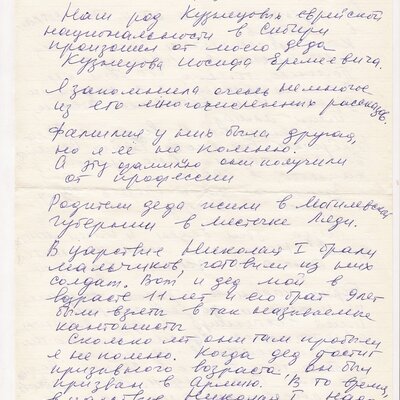 Наш род Кузнецовых еврейской
национальности в Сибири
произошел от моего деда
Кузнецова Иосифа Еремеевича.
Я запомнила очень немногое
из его многочисленных рассказов.
Фамилия у них была другая,
но я её не помню.
А эту фамилию они получили
от профессии
Родители деда жили в Могилевской
губернии в местечке Ляди.
В царствие Николая I брали
мальчиков, готовили из них
солдат. Вот и дед мой в
возрасте 11 лет и его брат 9 лет
были взяты в так называемые
кантонисты
Сколько лет они там пробыли
я не помню. Когда дед достиг
призывного возраста он был
призван в Армию. В то время,
в царствие Николая I надо